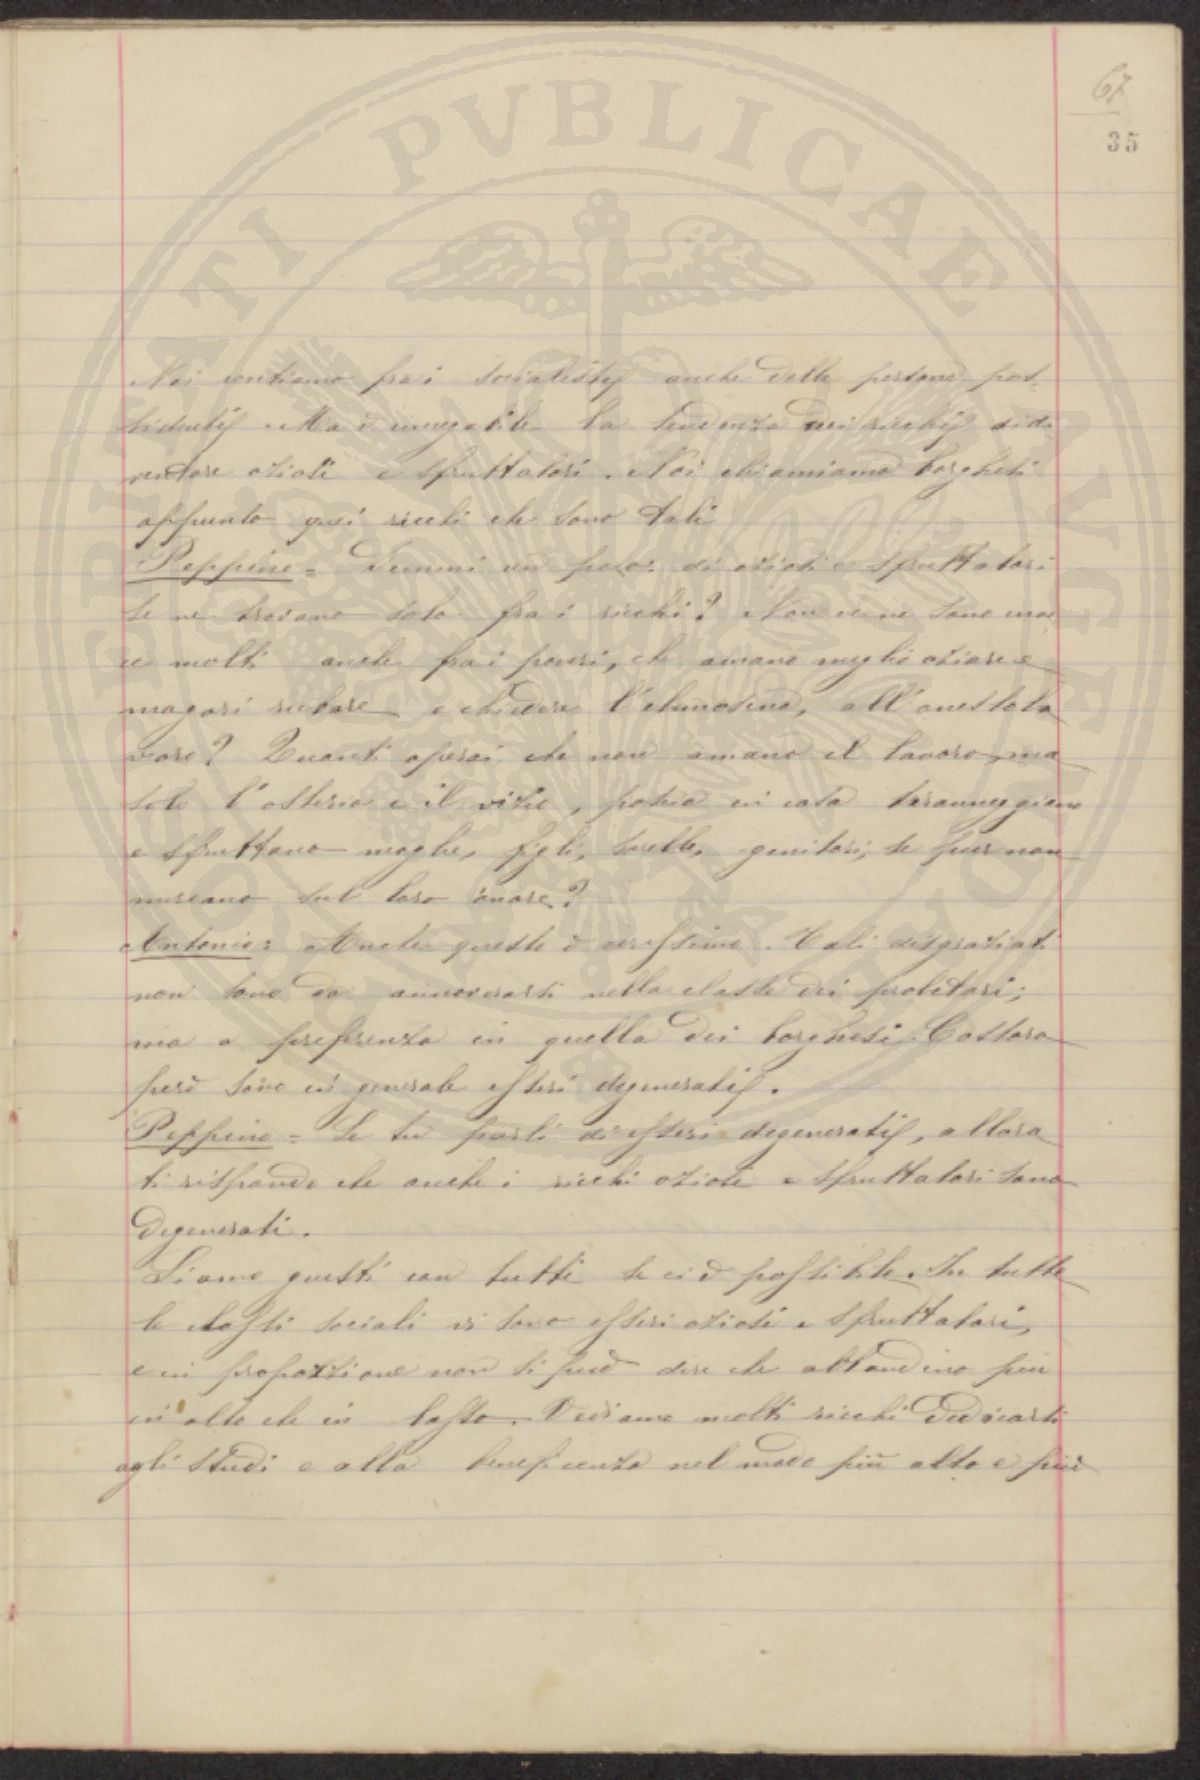 67
35
Noi contiamo fra i socialisti anche delle persone pos-
sidenti. Ma è innegabile la tendenza dei ricchi di di-
ventare oziosi e sfruttatori. Noi chiamiamo borghesi
appunto quei ricchi che sono tali
Peppino = Dimmi un poco: di oziosi e sfruttatori
se ne trovano solo fra i ricchi? Non ve ne sono inve
ce molti anche fra i poveri, che amano meglio oziare e
magari rubare e chiedere l'elemosina, all'onesto la
voro? Quanti operai che non amano il lavoro, ma
solo l'osteria e il vizio, poscia in casa tiranneggiano
e sfruttano moglie, figli, sorelle, genitori, se pur non
mercano sul loro onore?
Antonio: Anche questo è verissimo. Tali disgraziati
non sono da annoverarsi nella classe dei proletari;
ma a preferenza in quella dei borghesi. Costoro
però sono in generale esseri degenerati.
Peppino = Se tu parli di esseri degenerati, allora
ti rispondo che anche i ricchi oziosi e sfruttatori sono
degenerati.
Siamo giusti con tutti se ci è possibile. In tutte
le classi sociali vi sono esseri oziosi e sfruttatori,
e in proporzione non si può dire che abbondino più
in alto che in basso. Vediamo molti ricchi dedicarsi
agli studi e alla beneficenza nel modo più alto e più
PVBLICAE